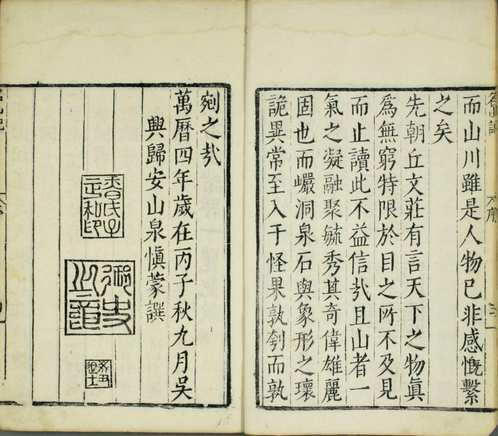 而山川雖是人物已非感慨繫
之矣
先朝丘文莊有言天下之物真
爲無窮特限於目之所不及見
而止讀此不益信哉且山者一
氣之凝融聚毓秀其奇偉雄麗
固也而巖洞泉石與象形之瓌
詭異常至入于怪果孰刳而孰
剜之哉
萬曆四年歲在丙子秋九月吳
興歸安山泉慎蒙譔
御史之章